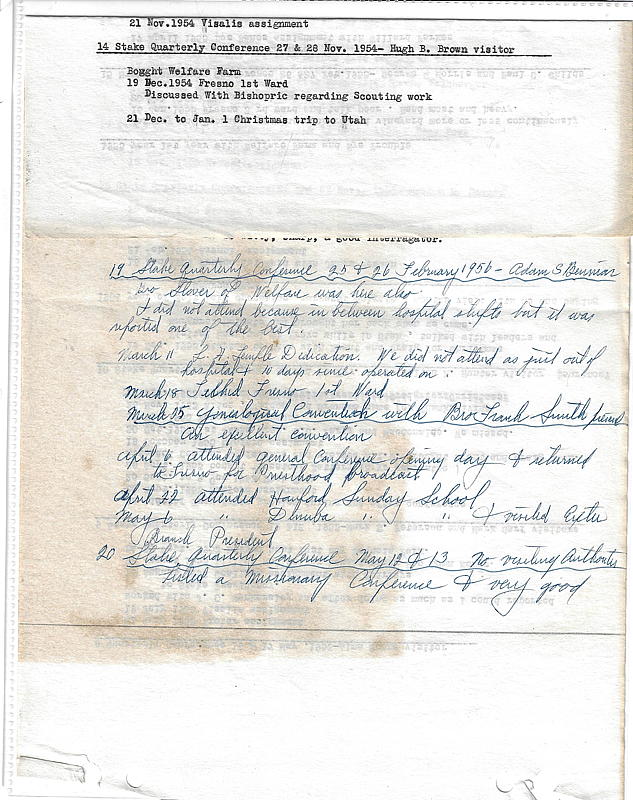 21 Nov.1954 Visalis assignment
14 Stake Quarterly Conference 27 & 28 Nov. 1954- Hugh B. Brown visitor
Bought Welfare Farm
19 Dec.1954 Fresno 1st Ward
Discussed With Bishopric regarding Scouting work
21 Dec. to Jan. 1 Christmas trip to Utah
sharp, a good interragator.
19 Stake Quarterly Conference 25 & 26 February 1956 - Adam S Bennion
Glover of Welfare was here also
I did not attend because in between hospital shifts but it was
reported one of the best.
March 11 L.A. Temple Dedication. We did not attend as just out of
hospital & 10 days since operated on
March 18 Fresno 1st Ward
March 25 Genealogical Convention with Bro Frank Smith present
An excellent convention
April 6 attended general Conference opening day & returned
to Fresno for Priesthood Broadcast
April 22 attended Hanford Sunday School
May 6 " Dinuba " " & visited
Branch President
20 Stake Quarterly Conference May 12 & 13 No visiting Authorities
Listed a Missionary Conference & very good